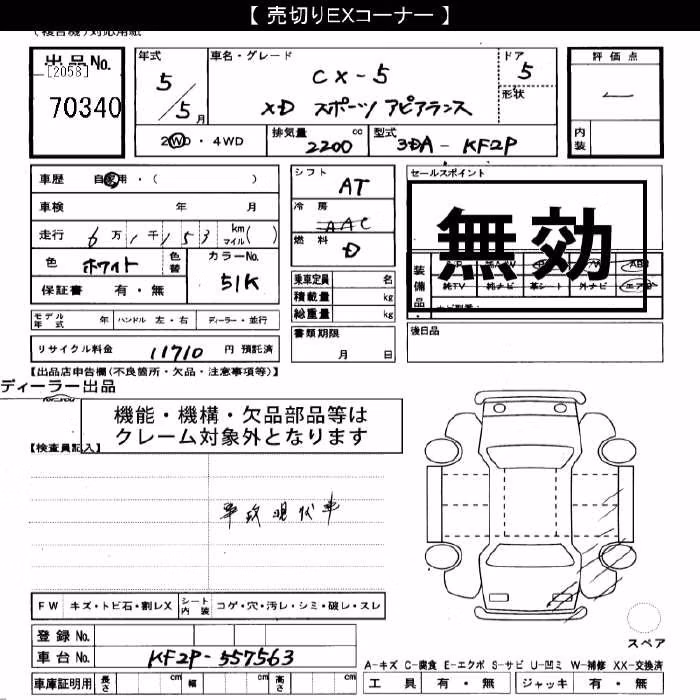 【 売切りEXコーナー 】
(複合機)対応用紙
出品No.
[2058]
70340
年式
5/5月
車名・グレード
CX-5
XD スポーツ アピアランス
ドア
5
形状
評価点
内装
2WD・4WD
排気量
2200 cc
型式
3DA-KF2P
車歴 自家用・( )
車検 年 月
走行 6万1千153 km マイル( )
色 ホワイト 色替
カラーNo. 51K
保証書 有・無
シフト
AT
冷房
AAC
燃料
D
乗車定員 名
積載量 kg
総重量 kg
書類期限
月 日
セールスポイント
無効
装備品
純TV 純ナビ 革シート 外ナビ エアB
後日品
モデル年式 年 ハンドル 左・右 ディーラー・並行
リサイクル料金 11710 円 預託済
【出品店申告欄(不良箇所・欠品・注意事項等)】
ディーラー出品
機能・機構・欠品部品等は
クレーム対象外となります
【検査員記入】
事故現状車
FW キズ・トビ石・割レX シート内装 コゲ・穴・汚レ・シミ・破レ・スレ
登録No.
車台No. KF2P-557563
車庫証明用 長さ cm 幅 cm 高さ cm
スペア
A-キズ C-腐食 E-エクボ S-サビ U-凹ミ W-補修 XX-交換済
工具 有・無 ジャッキ 有・無